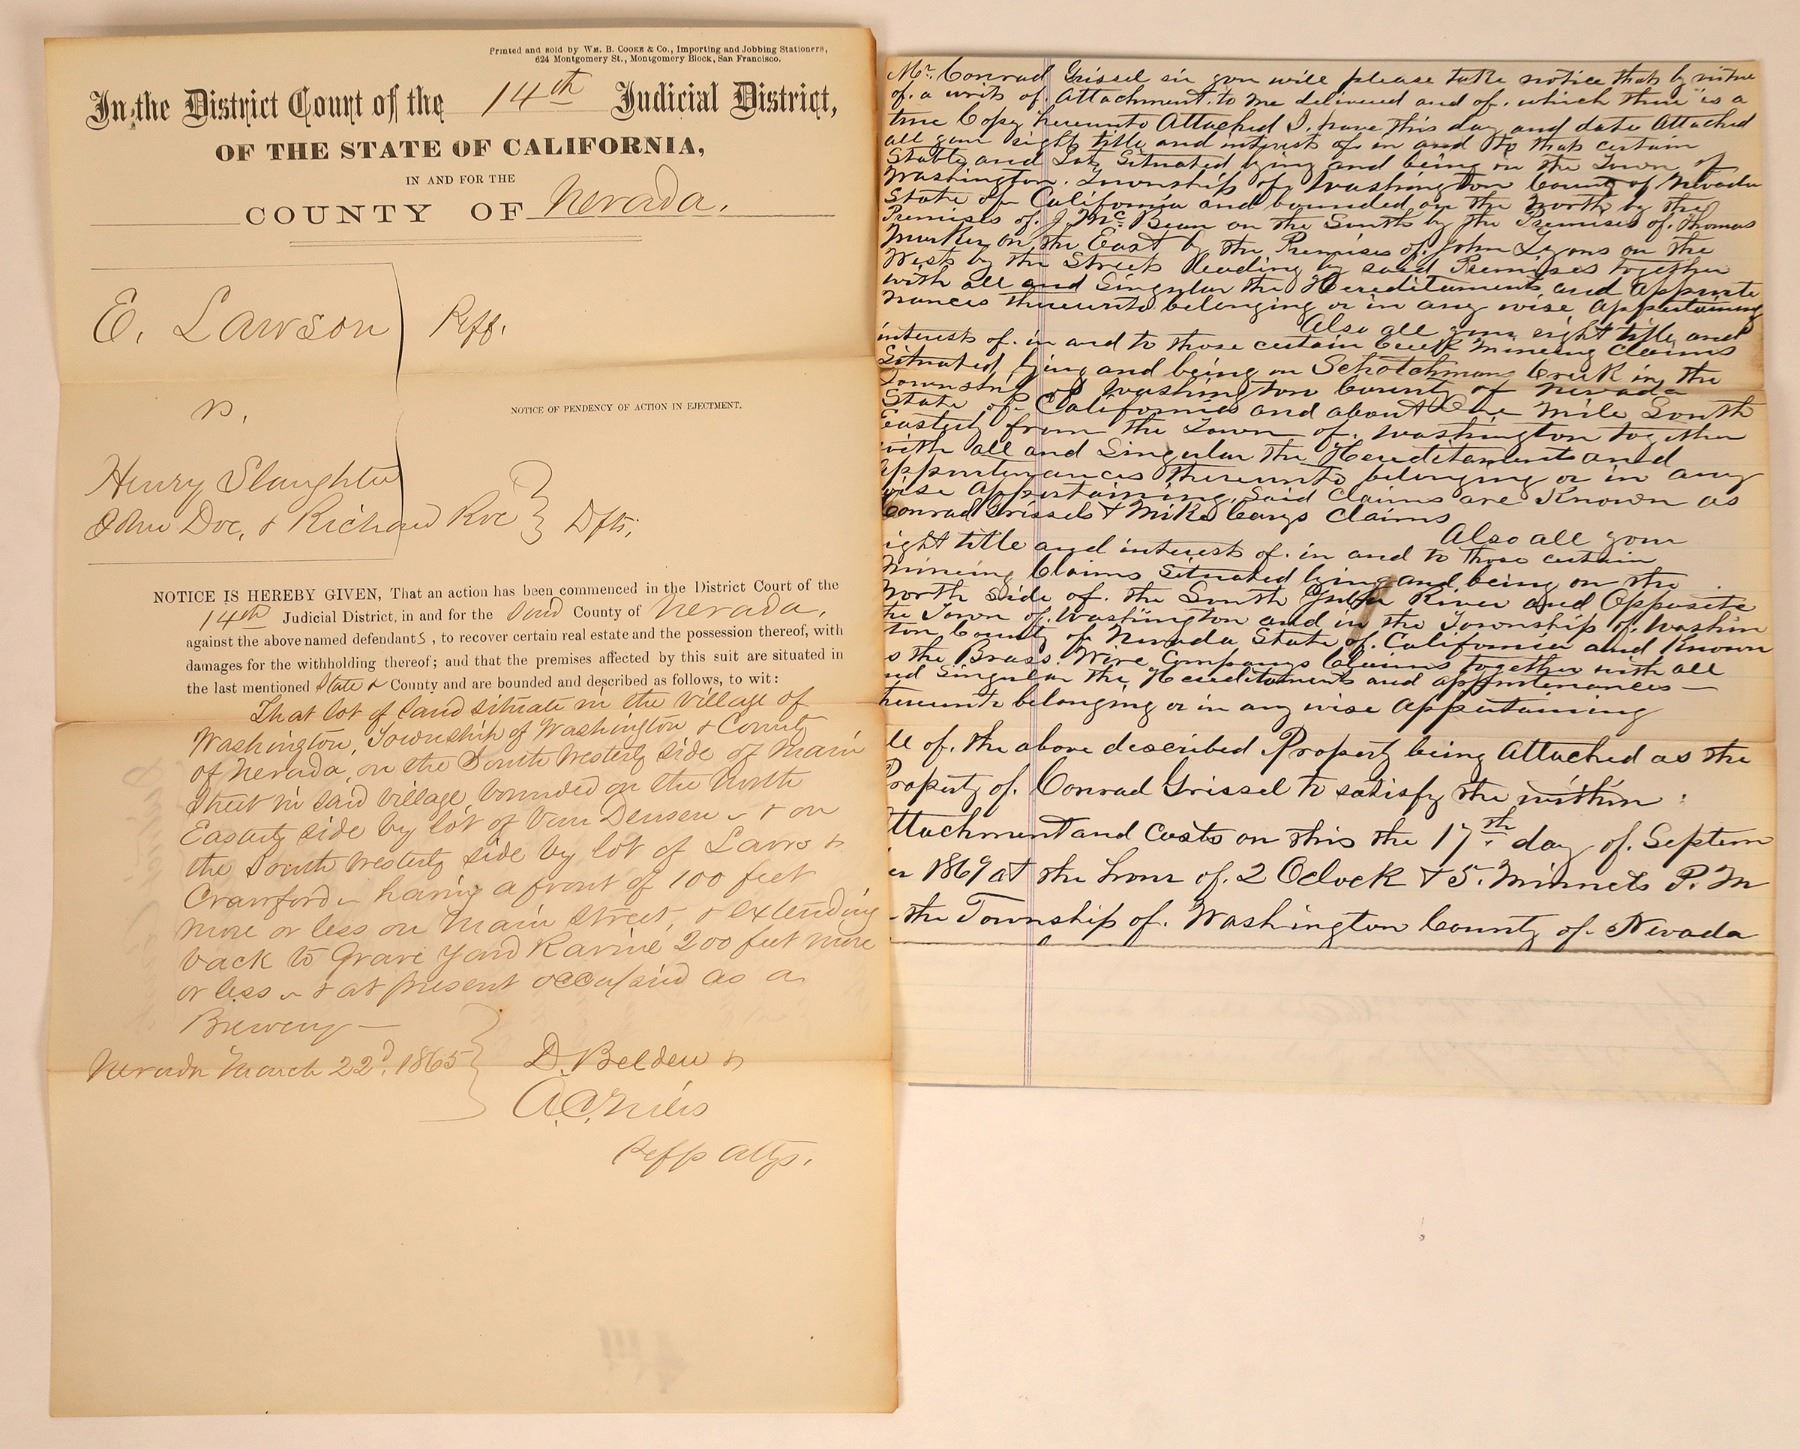 Printed and sold by WM. B. COOKE & Co., Importing and Jobbing Stationers,
624 Montgomery St., Montgomery Block, San Francisco.
In the District Court of the 14th Judicial District,
OF THE STATE OF CALIFORNIA,
IN AND FOR THE
COUNTY OF Nevada.
E. Lawson Plff.
vs.
NOTICE OF PENDENCY OF ACTION IN EJECTMENT.
Henry Slaughter
John Doe, & Richard Roe Dfts.
NOTICE IS HEREBY GIVEN, That an action has been commenced in the District Court of the
14th Judicial District, in and for the said County of Nevada,
against the above named defendants, to recover certain real estate and the possession thereof, with
damages for the withholding thereof; and that the premises affected by this suit are situated in
the last mentioned State & County and are bounded and described as follows, to wit:
That lot of land situate in the village of
Washington, Township of Washington & County
of Nevada, on the South Westerly side of Main
Street in said village, bounded on the North
Easterly side by lot of Van Deusen & on
the South Westerly side by lot of Laws &
Crawford having a front of 100 feet
more or less on Main Street, & extending
back to Grave Yard Ravine 200 feet more
or less & at present occupied as a
Brewery
Nevada March 22d. 1865 D. Belden &
A.C. Niles
Plffs Attys.
Mr. Conrad Grissel sir you will please take notice that by virtue
of. a writ of Attachment. to me delivered and of. which this is a
true Copy hereunto Attached I. have this day and date Attached
all your right title and interest of in and to that certain
Stable and Lot Situated lying and being in the Town of
Washington. Township of Washington County of Nevada
State of California and bounded on the North by the
Premises of. J. McBean on the South by the Premises of. Thomas
on the East by the Premises of. John Lyons on the
West by the Street leading by said Premises together
with all and Singular the Hereditaments and Appurte
nances thereunto belonging or in any wise Appertaining
Also all your right title and
interest of. in and to those certain Creek Mineing Claims
Situated lying and being on Schotchmans Creek in the
Township of Washington County of Nevada
State of. California and about One Mile South
Easterly from the Town of. Washington together
with all and Singular the Hereditaments and
Appurtenances thereunto belonging or in any
wise Appertaining Said Claims are Known as
Conrad Grissels & Mike Carys Claims
Also all your
ight title and interest of. in and to those certain
Mineing Claims Situated lying and being on the
North side of. the South Yuba River and Opposite
the Town of. Washington and in the Township of. Washin
ton County of Nevada State of. California and Known
s the Brass. Wire Companys Claims together with all
nd Singular the Hereditaments and appurtenances
hereunto belonging or in any wise Appertaining
ll of. the above described Property being Attached as the
Property of. Conrad Grissel to satisfy the within
ttachment and Costs on this the 17th day of. Septem
er 1869 at the hour of. 2 Oclock & 5. Minnets P. M
the Township of. Washington County of. Nevada